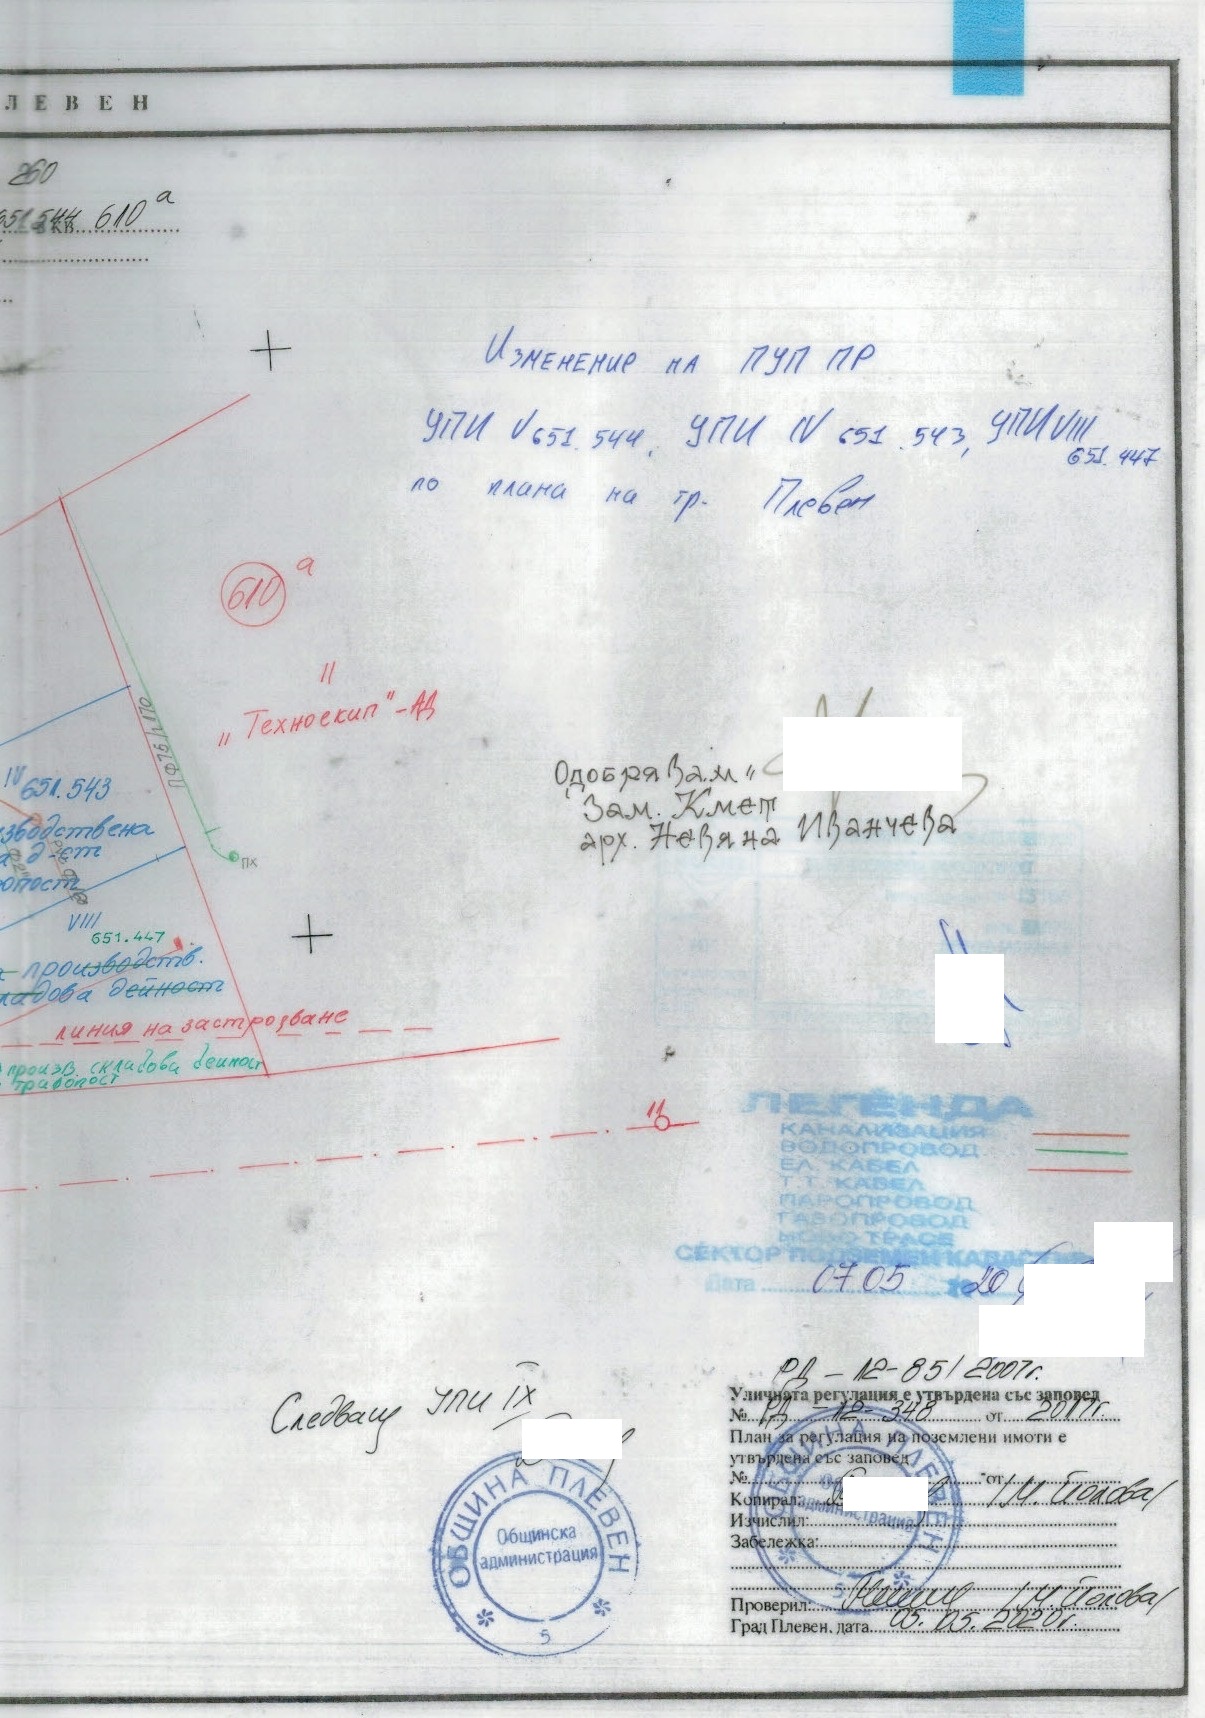 ЛЕВЕН
260
651.544 кв. 610 а
Изменение на ПУП ПР
УПИ V 651.544, УПИ IV 651.543, УПИ VIII 651.447
по плана на гр. Плевен
610 а
II
„Техноскип"-АД
ПФ75/170
IV 651.543
изводствена
а д-ст
опост
ПХ
VIII
651.447
производств.
ладова дейност
линия на застрояване
произв. складова дейност
трафопост
11
Одобрявам:
Зам. Кмет
арх. Невяна Иванчева
ЛЕГЕНДА
КАНАЛИЗАЦИЯ
ВОДОПРОВОД
ЕЛ. КАБЕЛ
Т.Т. КАБЕЛ
ПАРОПРОВОД
ГАЗОПРОВОД
НОВО ТРАСЕ
СЕКТОР ПОДЗЕМЕН КАДАСТЪР
Дата 07.05 20
Следващ УПИ IX
ОБЩИНА ПЛЕВЕН
Общинска
администрация
5
РД-12-85/2007г.
Уличната регулация е утвърдена със заповед
№ РД-12-348 от 2017г.
План за регулация на поземлени имоти е
утвърдена със заповед
№ от
Копирал: /М. Попова/
Изчислил:
Забележка:
Проверил: /М. Попова/
Град Плевен, дата 05.05.2020г.
ОБЩИНА ПЛЕВЕН
администрация
5